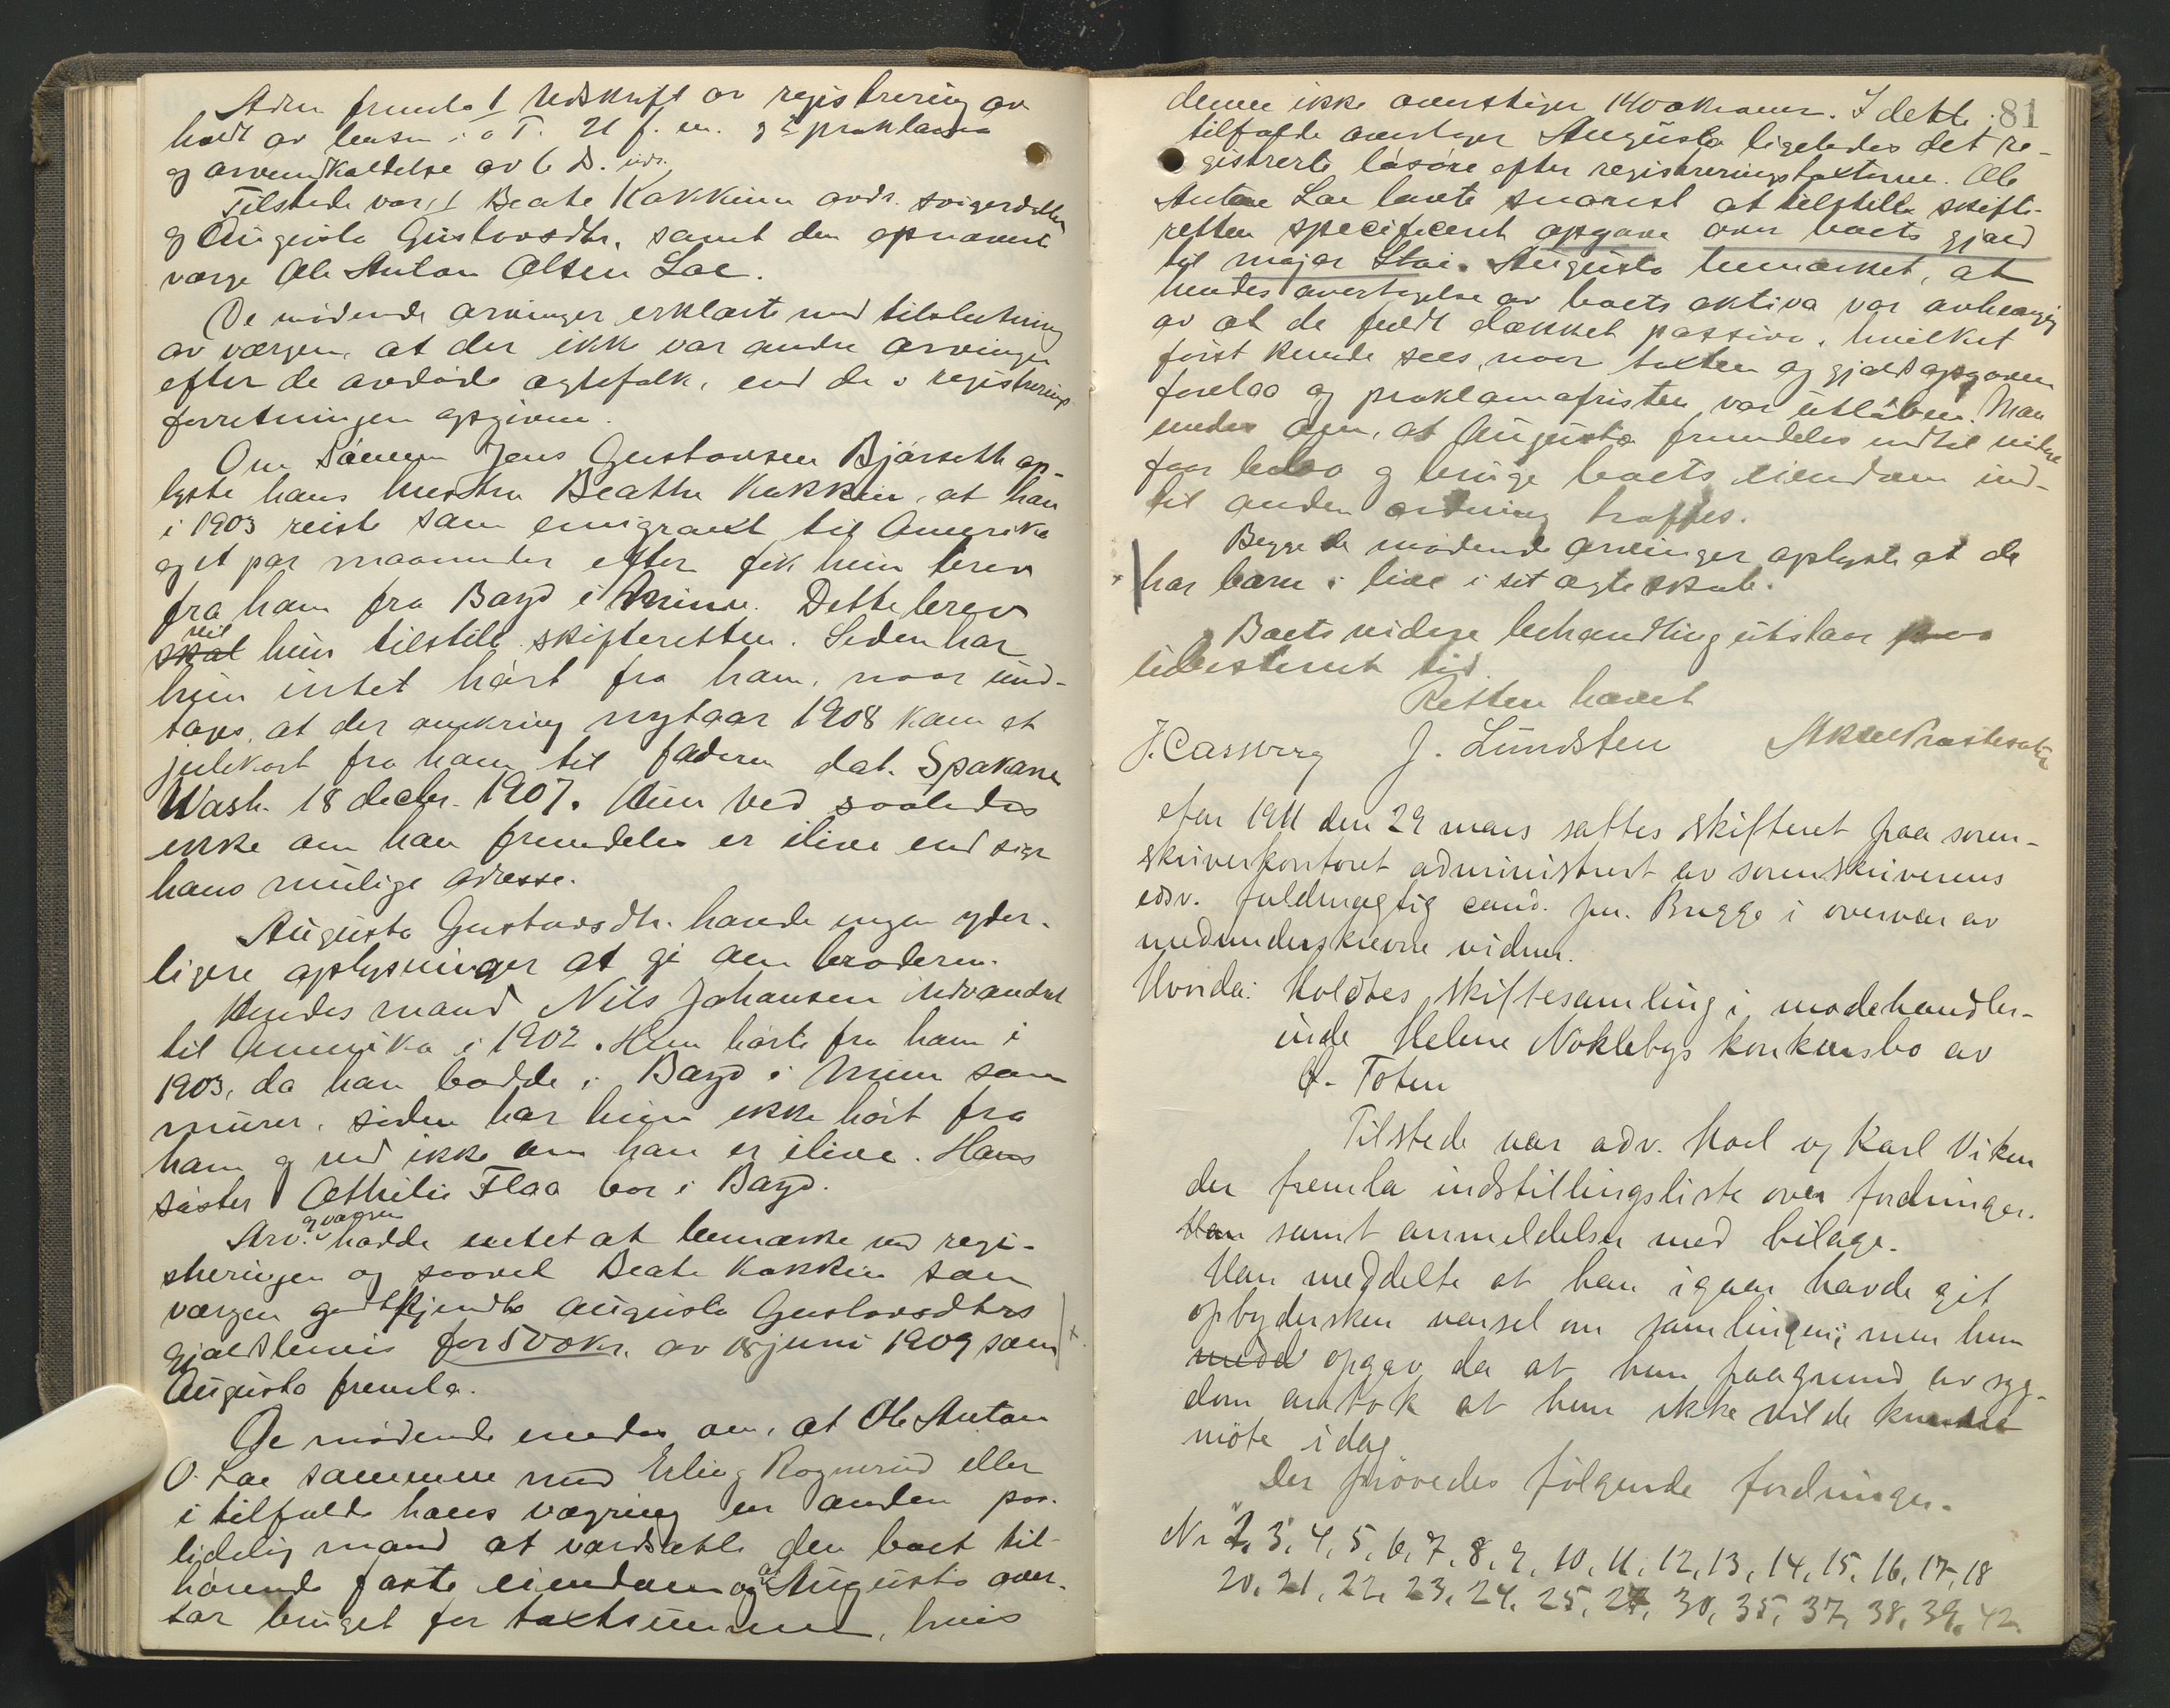 Adm. fremla 1 Utskrift av registrering av
holdt av lensm. i Ø. T. 21 f. m. og 2 proklama
og arveindkaldelse av 6 ds.
Tilstede var: 1 Beate Kakkin avdr. svigerdatter
og Augusta Gustavsdtr. samt den opnævnte
verge Ole Anton Olsen Lae.
De mödende arvinger erklærte med tilslutning
av vergen, at der ikke var andre arvinger
efter de avdöde egtefolk, end de i registrerings-
forretningen opgivne.
Om Sönnen Jens Gustavsen Bjørseth op-
lyste hans hustru Beathe Kakkin, at han
i 1903 reiste som emigrant til Amerika
og et par maaneder efter fik hun brev
fra ham fra Bayd i Minn. Dette brev
vil
skal hun tilstille skifteretten. Siden har
hun intet hört fra ham, naar und-
tages, at der omkring nytaar 1908 kom et
julekort fra ham til faderen dat. Spokane
Wash. 18 decbr. 1907. Hun ved saaledes
ikke om han fremdeles er ilive end sige
hans mulige adresse.
Augusta Gustavsdtr. havde ingen yder-
ligere oplysninger at gi om broderen.
Hendes mand Nils Johansen utvandret
til Amerika i 1902. Hun hörte fra ham i
1903, da han bodde i Bayd i Minn som
murer, siden har hun ikke hört fra
ham og ved ikke om han er ilive. Hans
söster Othilie Flaa bor i Bayd.
og vergen
Arv. hadde intet at bemerke ved regi-
streringen og saavel Beate Kakkin som
vergen godtkjendte Augusta Gustavsdtrs
gjældsbevis for 500 kr. av 18 juni 1909 som
Augusta fremla.
De mödende enedes om, at Ole Anton
O. Lae sammen med Erling Rognerud eller
i tilfælde hans vægring en anden paa-
lidelig mand at verdsætte den boet til-
hörende faste eiendom og at Augusta over-
tar bruget for takstsummen, hvis
81
denne ikke overstiger 1400 kroner. I dette
tilfælde overtager Augusta ligeledes det re-
gistrerte lösöre efter registreringstaksterne. Ole
Anton Lae lovte snarest at tilstille skifte-
retten specificeret opgave over boets gjæld
til major Stai. Augusta bemerket, at
hendes overtagelse av boets aktiva var avhengig
av at de fuldt dækket passiva, hvilket
först kunde sees, naar taksten og gjældsopgaven
forelaa og proklamafristen var utlöben. Man
enedes om, at Augusta fremdeles indtil videre
faar bebo og bruge boets eiendom ind-
til anden ordning træffes.
Begge de mödende arvinger oplyste at de
har barn i live i sit egteskab.
Boets videre behandling utstaar paa
ubestemt tid.
Retten hævet
J. Lundsten
Aar 1911 den 29 mars sattes skifteret paa soren-
skriverkontoret administrert av sorenskriverens
edsv. fuldmægtig cand. jur. Brugge i overvær av
medunderskrevne vidner.
Hvorda: Holdtes skiftesamling i modehandler-
inde Helene Noklebys konkursbo av
Ø. Toten
Tilstede var adv. Hoel og Karl Viken
der fremla indstillingsliste over fordringer.
Han samt anmeldelser med bilage.
Han meddelte at han igaar havde git
opbydersken varsel om samlingen; men hun
medd opgav da at hun paagrund av syg-
dom antok at hun ikke vilde kunde
möte idag.
Der prövedes fölgende fordringer.
Nr 2, 3, 4, 5, 6, 7, 8, 9, 10, 11, 12, 13, 14, 15, 16, 17, 18
20, 21, 22, 23, 24, 25, 27, 30, 35, 37, 38, 39, 42.